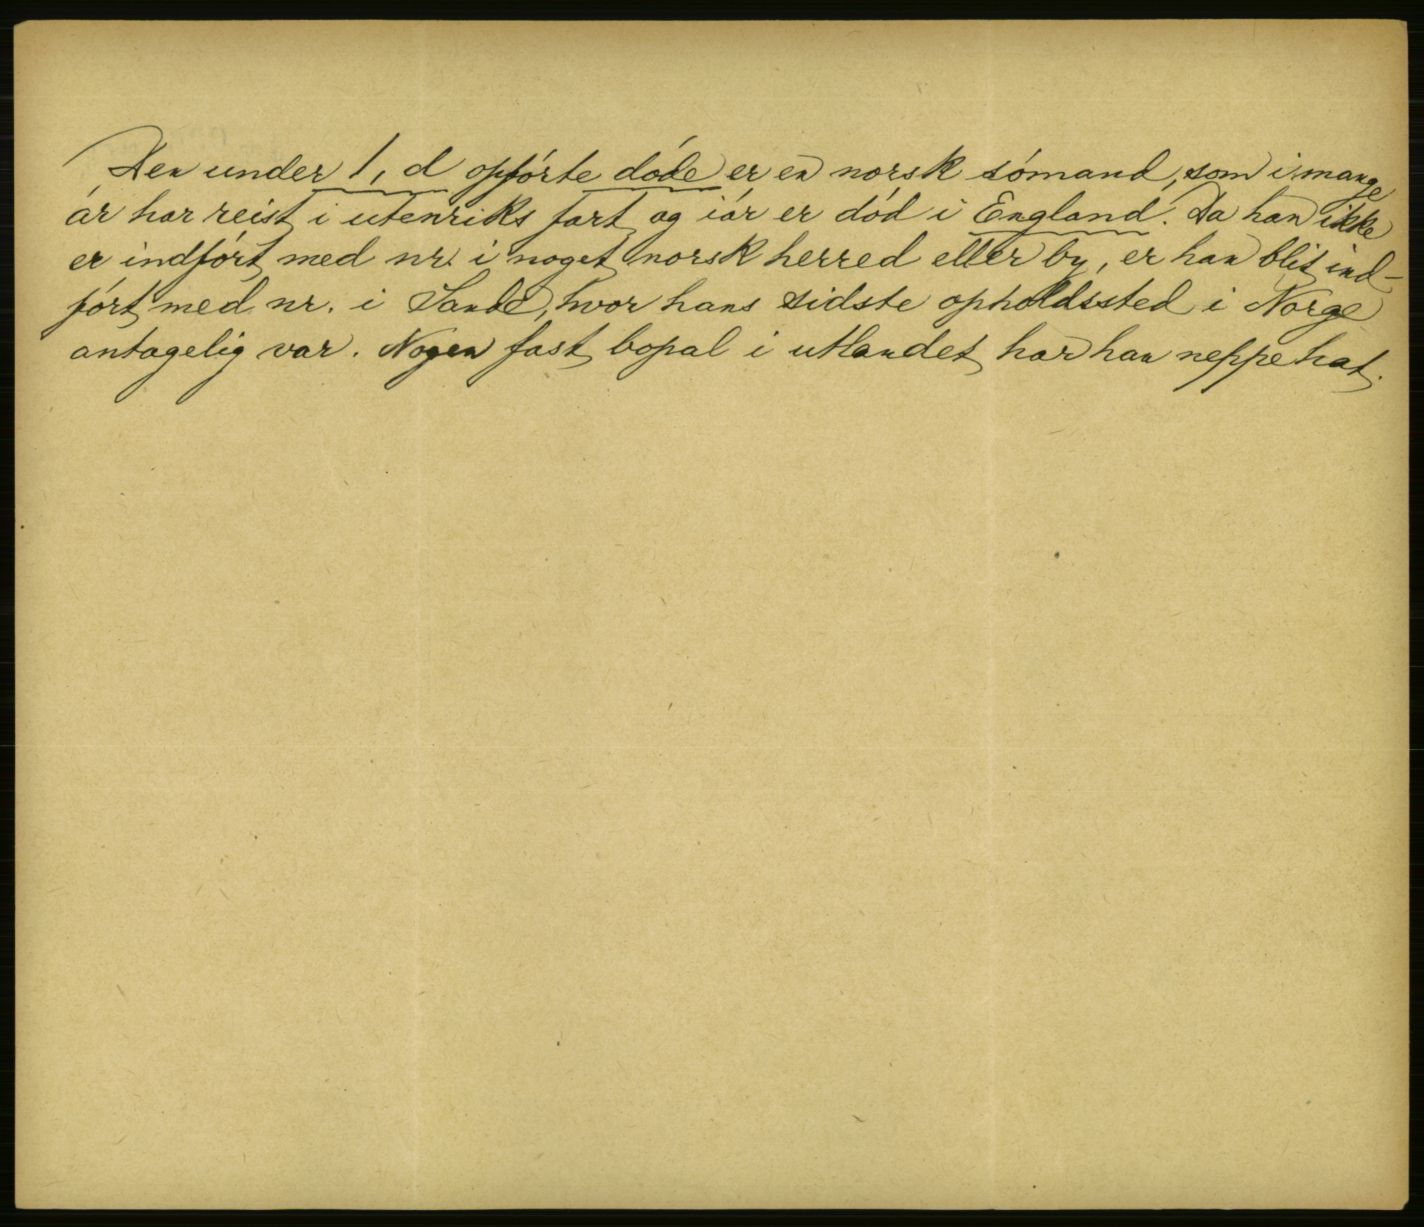 Den under 1, d opførte døde er en norsk sømand, som i mange
år har reist i utenriks fart og iår er død i England. Da han ikke
er indført med nr. i noget norsk herred eller by, er han blit ind-
ført med nr. i Sande, hvor hans sidste opholdssted i Norge
antagelig var. Nogen fast bopæl i utlandet har han neppe hat.